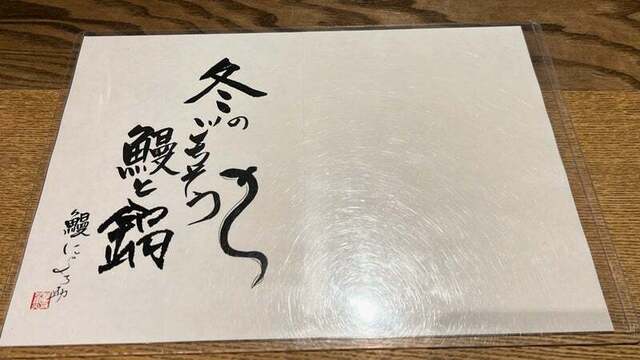 冬のごちそう
鰻と鍋
鰻にょろ助